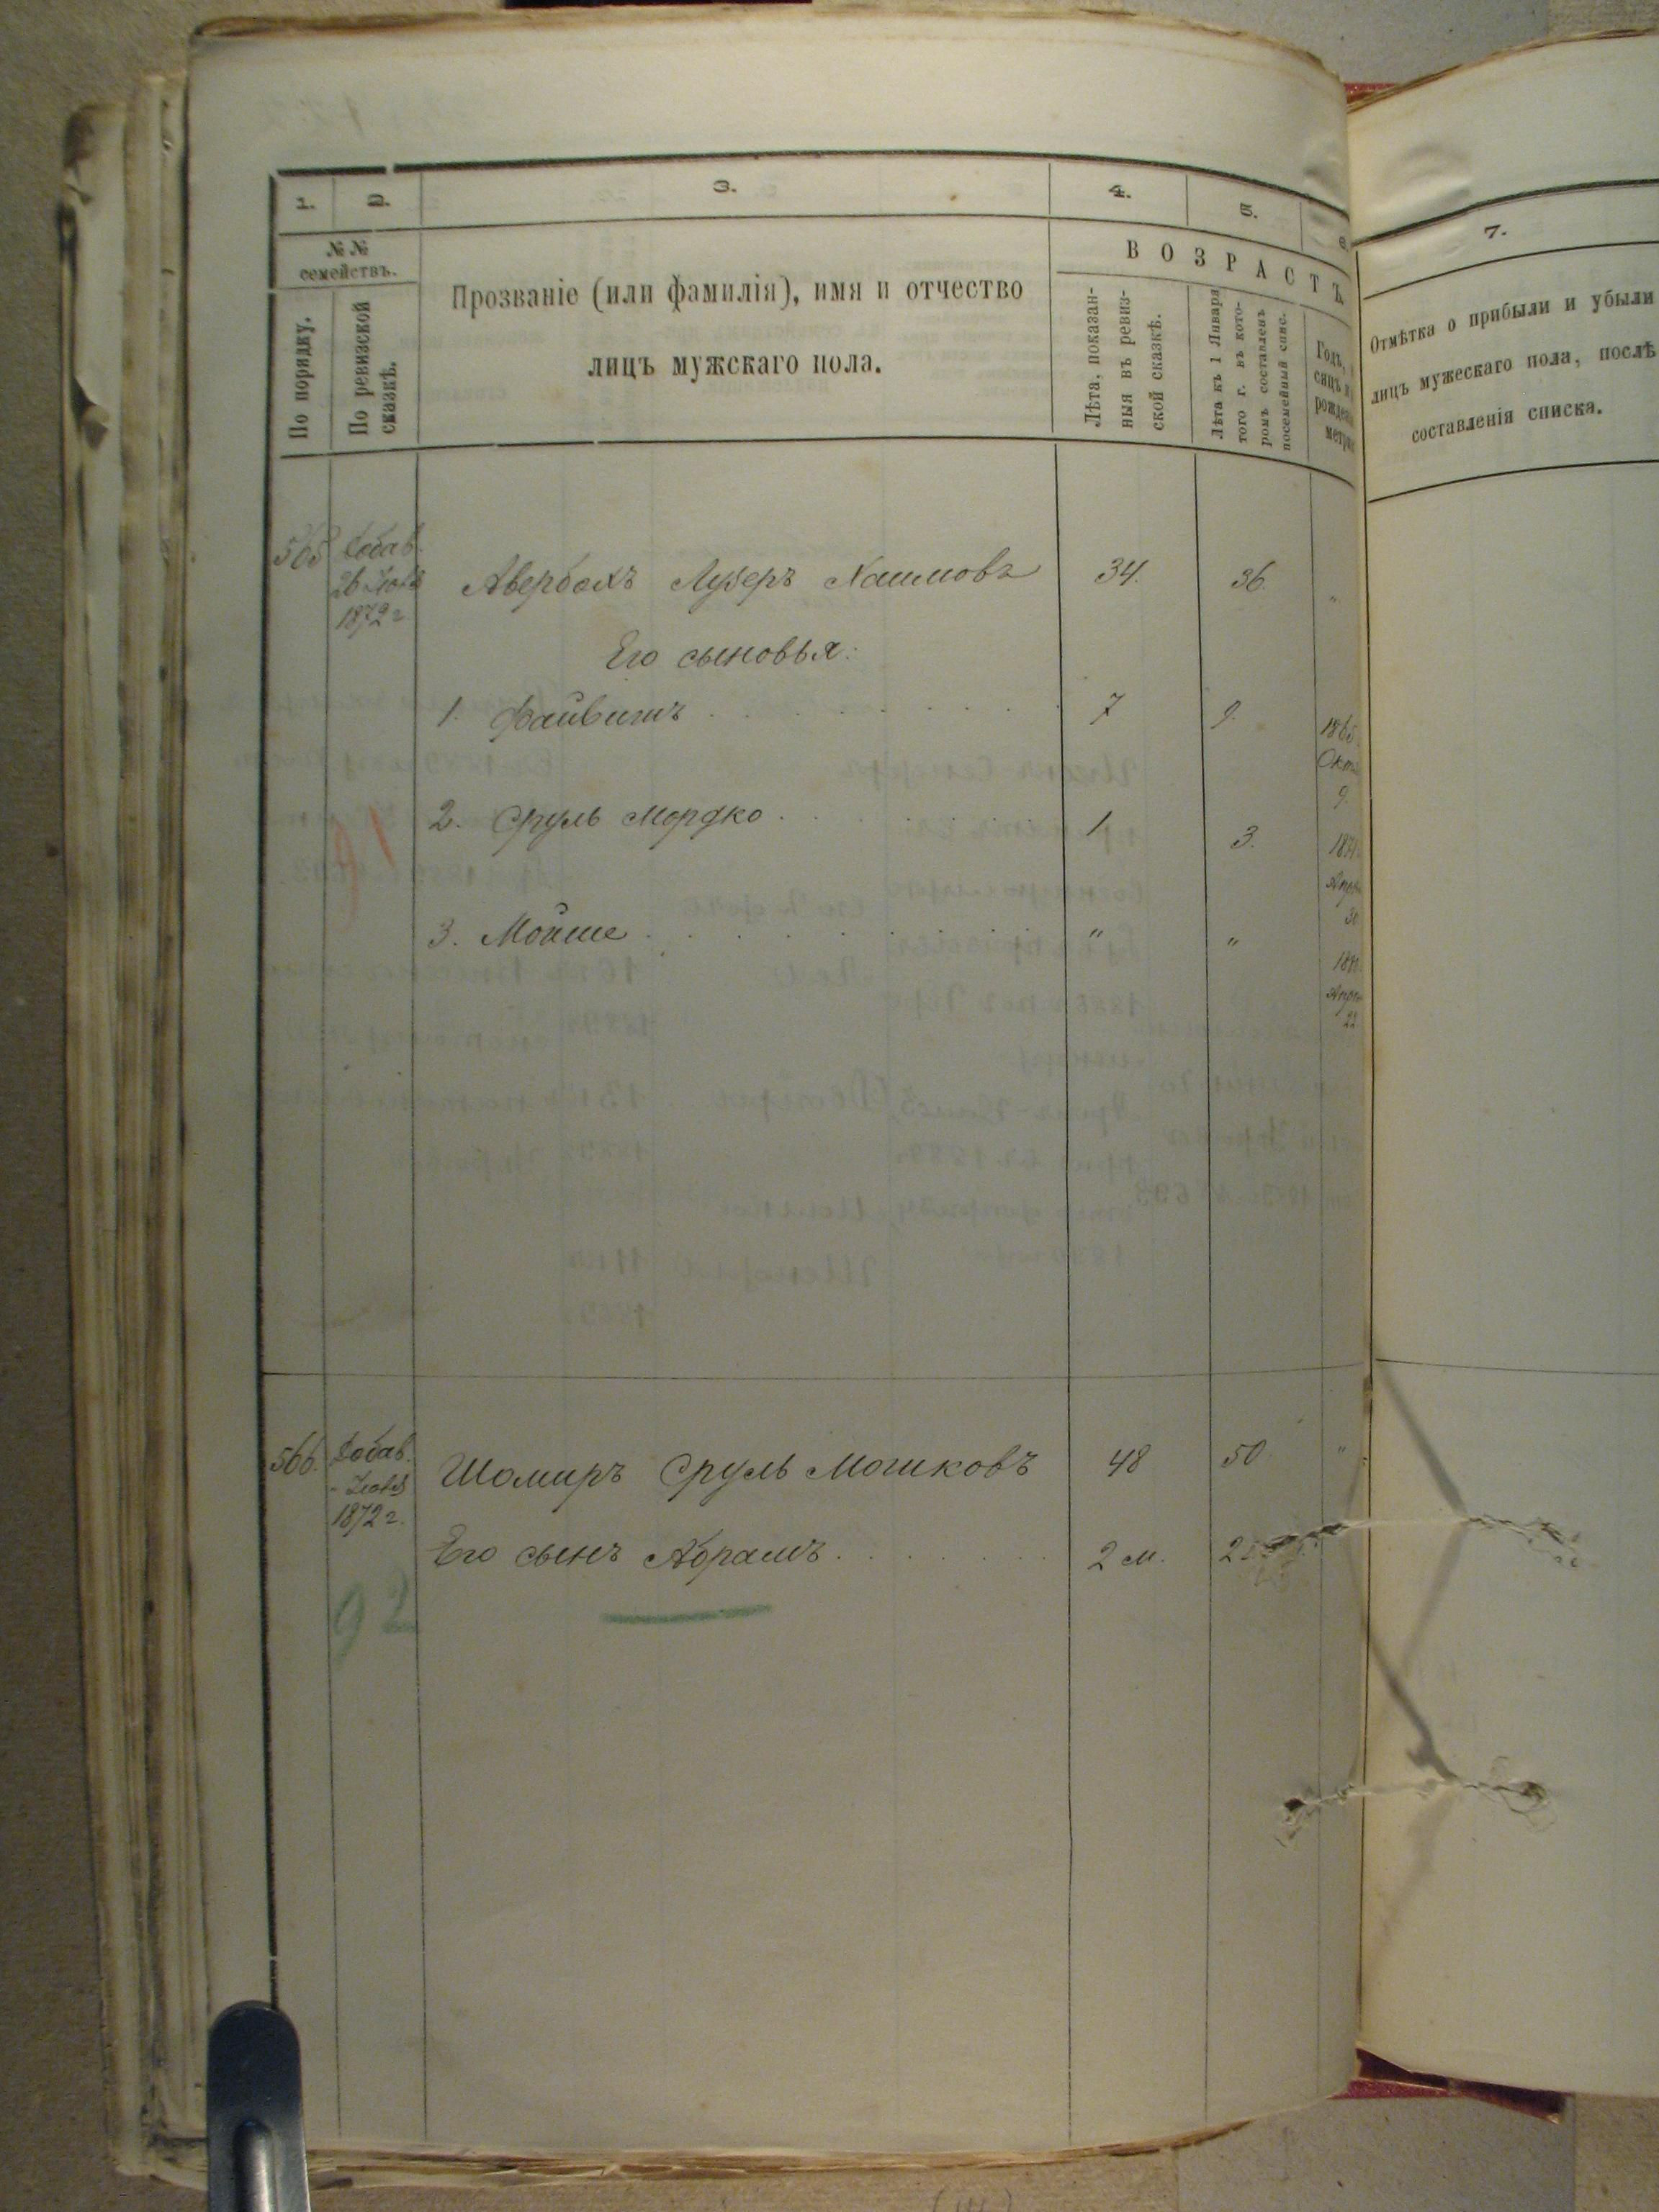 1. 2. 3. 4. 5. 6.
№ №
семействъ.
По порядку.
По ревизской
сказкѣ.
Прозваніе (или фамилія), имя и отчество
лицъ мужскаго пола.
ВОЗРАСТЪ
Лѣта, показан-
ныя въ ревиз-
ской сказкѣ.
Лѣта къ 1 Января
того г. въ кото-
ромъ составленъ
посемейный спис.
Годъ,
рожден
метри
7.
Отмѣтка о прибыли и убыли
лицъ мужескаго пола, послѣ
составленія списка.
565 Добав. Авербахъ Лузеръ Хаимовъ 34. 36. "
26
1872 г
Его сыновья:
1. Файвишъ 7 9. 1865.
Окт
9.
2. Сруль Мордко 1 3. 1871
Апр
30
3. Мойше " "
Апр
22
566. Добав. Шомиръ Сруль Мошковъ 48 50 "
1872 г.
Его сынъ Абрамъ 2 м. 2
92